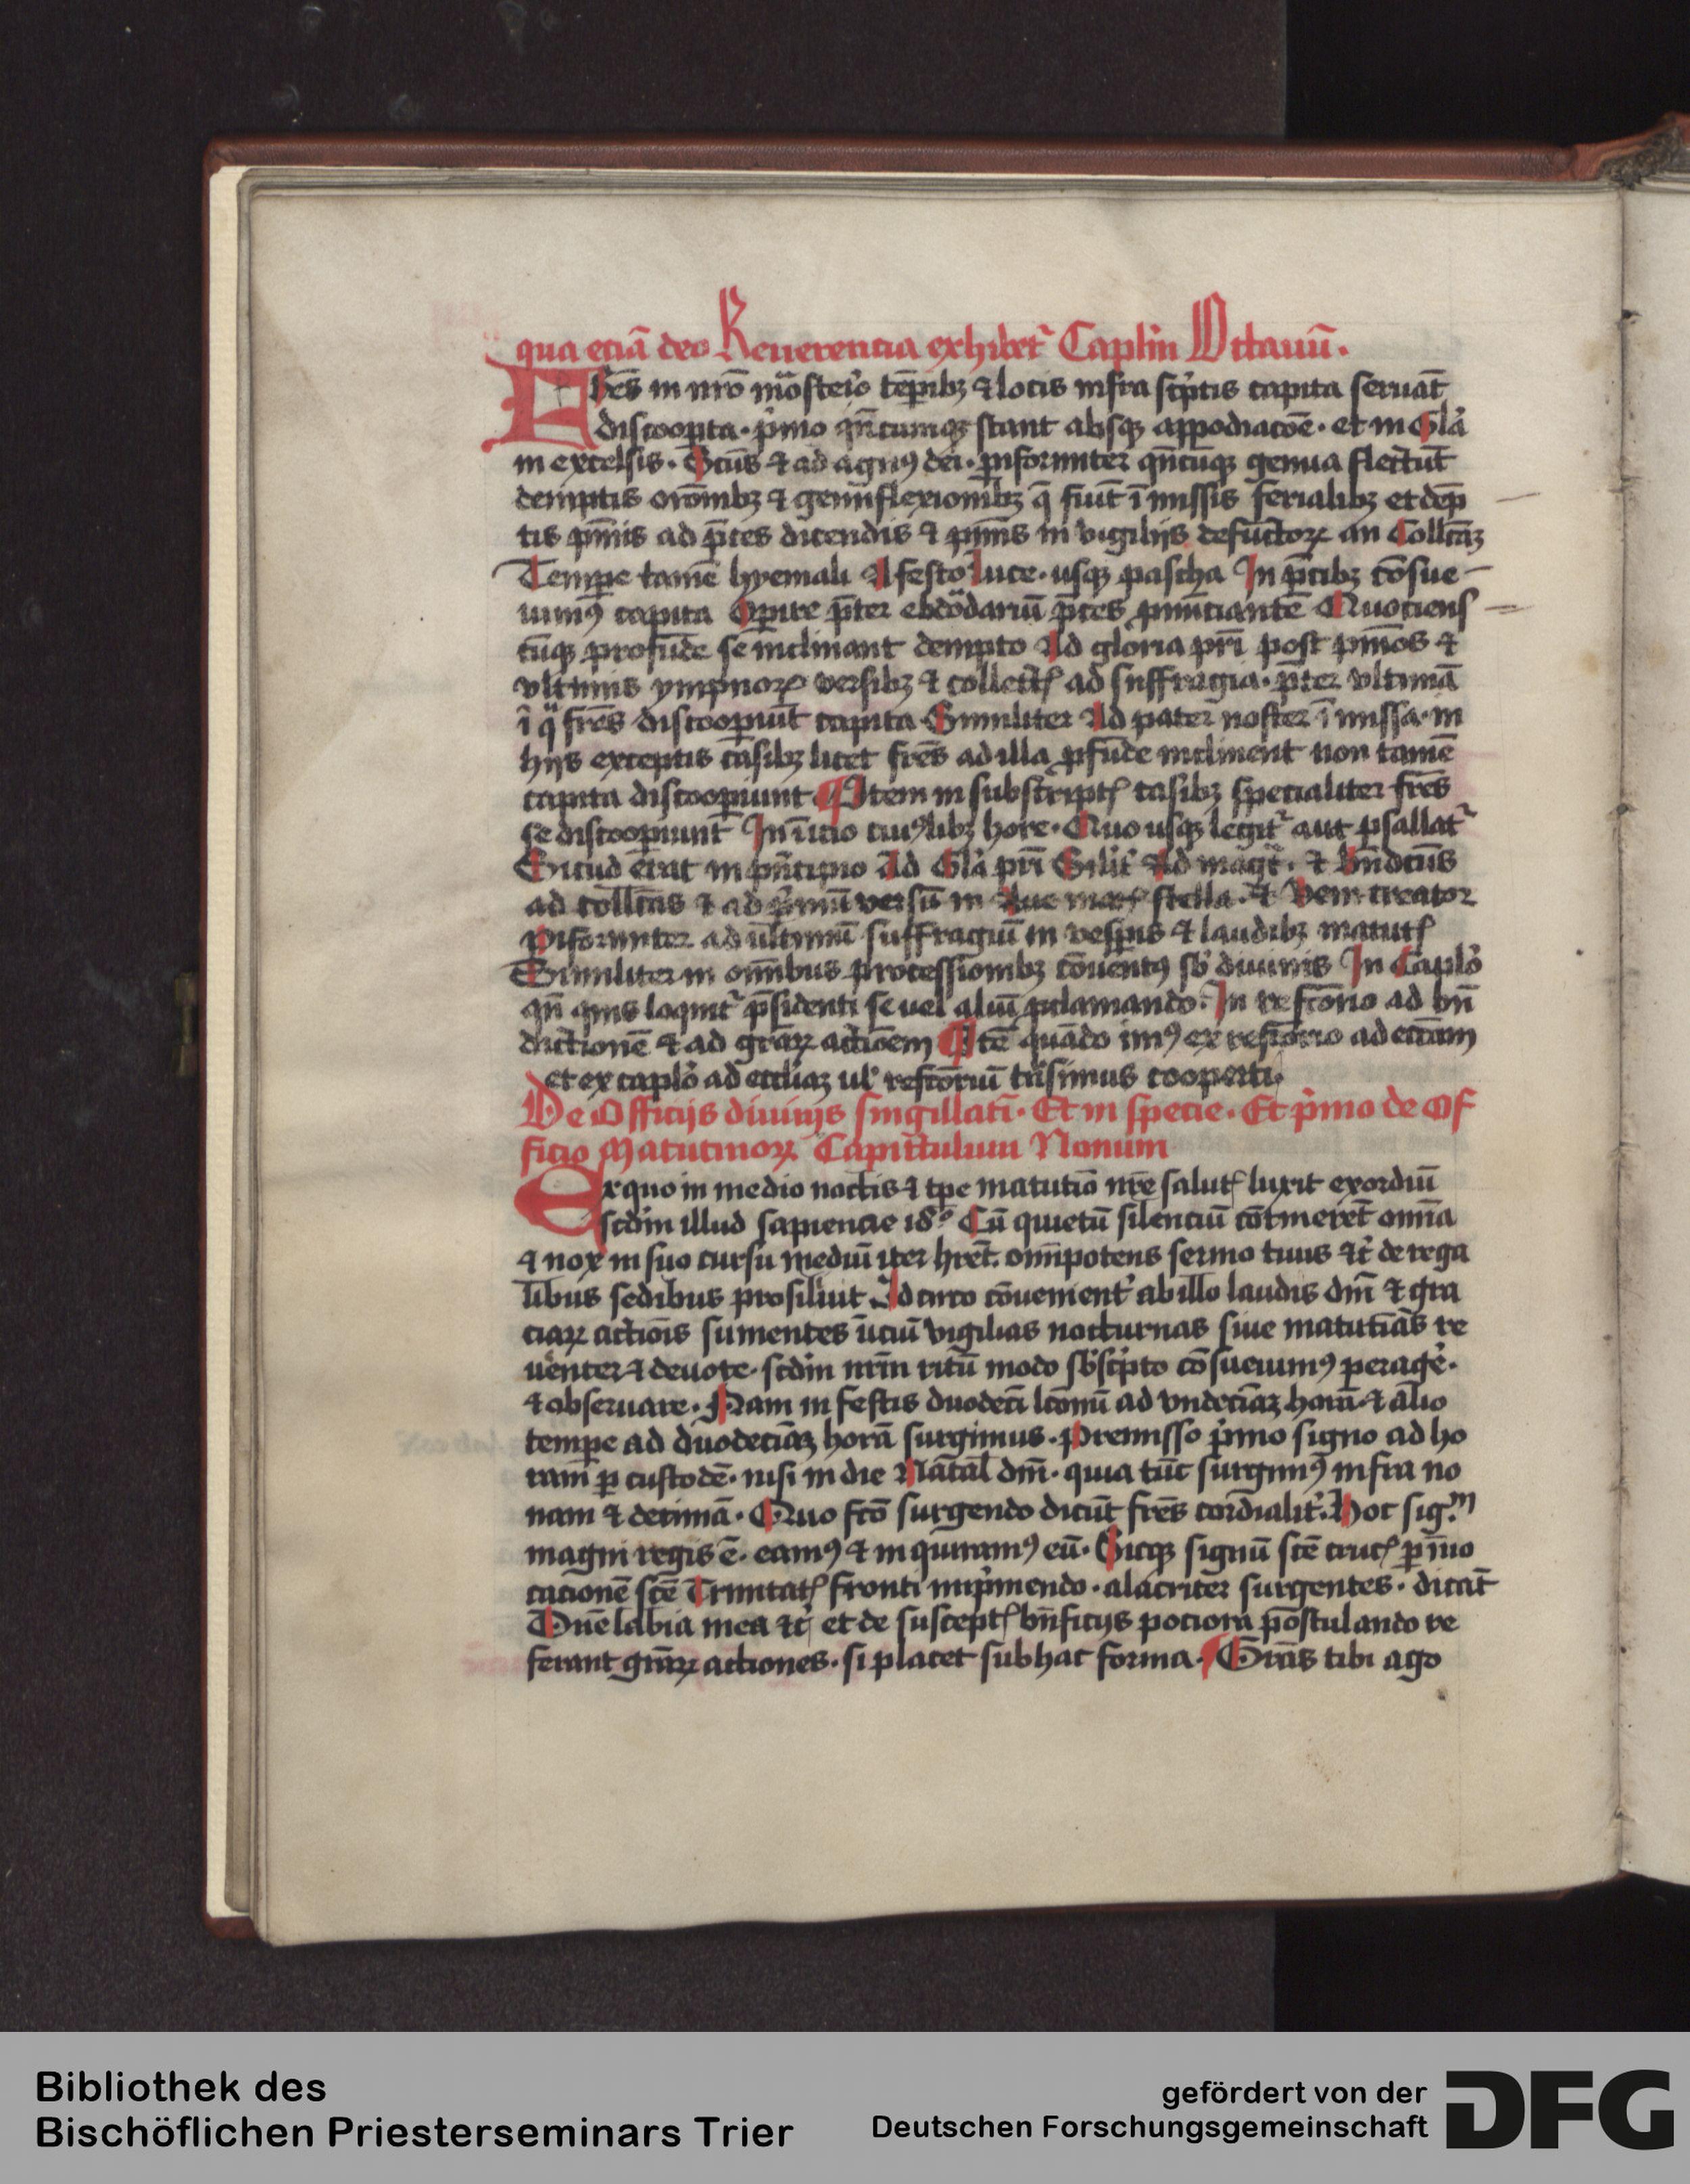 qua eciā deo Reuerentia exhibet᷑ Caplm̄ Octauū.
Fr̄es in nr̄o mōasterio tēpibꝫ ⁊ locis infra scͥptis capita seruāt
discoopta. pͥmo qn̄cumqꝫ stant absqꝫ appodiacōe. et in Glȧ
in excelsis. Sctūs ⁊ ad agnꝰ dei. piformiter qn̄cūqꝫ genua flectūt
demptis orōnibꝫ ⁊ genuflexionibꝫ q̄ fiūt ī missis ferialibꝫ et dēp
tis p̄mis ad p̄ces dicendis ⁊ p̄mis in vigilijs defūctoꝝ an Collcāꝫ
Tempe tamē hyemali A festo luce. usqꝫ pascha In p̄cibꝫ cōsue
uimꝰ capita Opire p̄ter ebdōdariū p̄ces ꝓnūciantē Quociens
cūqꝫ profūde se inclinant dempto Ad gloria pr̄i post pmos ⁊
vltimis ympnoꝝ versibꝫ ⁊ collectꝭ ad suffragia. p̄ter vltimā
ī qͣ fr̄es discoopiūt capita. Similiter Ad pater noster ī missa. in
hijs exceptis cāsibꝫ licet fr̄es ad illa ꝓfūde inclinent non tamē
capita discoopiunt. Item in subscriptꝭ casibꝫ specialiter fr̄es
se discoopiunt In īicio cuiꝰlibꝫ hore. Quo usqꝫ legit᷑ aut psallat᷑
Sicud erat in pn̄cipio Ad Glȧ pr̄i Silīt Ad magͣt. ⁊ Bn̄dctūs
ad collcās ⁊ ad pͥmū versū in Aue marꝭ stella. ⁊ Veni creator
piformiter ad ultimū suffragiū in vespis ⁊ laudibꝫ matutꝭ
Similiter in omībus processionibꝫ cōuentꝰ sb̄ diuinis In Caplȯ
qn̄ quis loquit᷑ p̄sidenti se uel aliū ꝓclamando. In refcōrio ad bn̄
dictionē ⁊ ad grāꝝ actiōem Itē quādo imꝰ ex refcōrio ad ecciam
et ex caplȯ ad eccliaꝫ ul᷑ refcōriū tͣsimus cooperti.
De Officijs diuinis singillatī. Et in specie. Et pͥmo de Of
ficio Matutinoꝝ Capittulum Nonum
Ex quo in medio noctis ⁊ tpe matutīo nr̄e salutꝭ luxit exordiū
scdm̄ illud sapiencie 18º Cū quietū silenciū cōtineret omīa
⁊ nox in suo cursu mediū iter hr̄et. omīpotens sermo tuus ⁊c̄ de rega
libus sedibus prosiliuit Idcirco cōuenient᷑ ab illo laudis dm̄ ⁊ gra
ciaꝝ actiōis sumentes īiciū vigilias nocturnas siue matutīas re
uenter ⁊ deuote. scdm̄ nr̄m ritū modo sb̄scͥpto cōsueuimꝰ peragē.
⁊ obseruare. Nam in festis duodeci lcōnū ad vndecīaꝫ horā. ⁊ alio
tempe ad duodeciāꝫ horā surgimus. Premisso pͥmo signo ad ho
ram ꝑ custodē. nisi in die Nātal dm̄. quia tūc surgimꝰ infra no
nam ⁊ decimā. Quo fcō surgendo dicūt fr̄es cordialit᷑. Hoc sigᵐ
magni regis ē. eamꝰ ⁊ inquiramꝰ eū. Sicqꝫ signū scē crucꝭ ꝑ īuo
cacionē scē Trinitatꝭ fronti impͥmendo. alacriter surgentes. dicāt
Dn̄e labia mea ⁊c̄ et de susceptꝭ bn̄ficijs pociora postulando re
ferant grāꝝ actiones. si placet sub hac forma. Grās tibi ago
Bibliothek des
Bischöflichen Priesterseminars Trier
gefördert von der
Deutschen Forschungsgemeinschaft
DFG